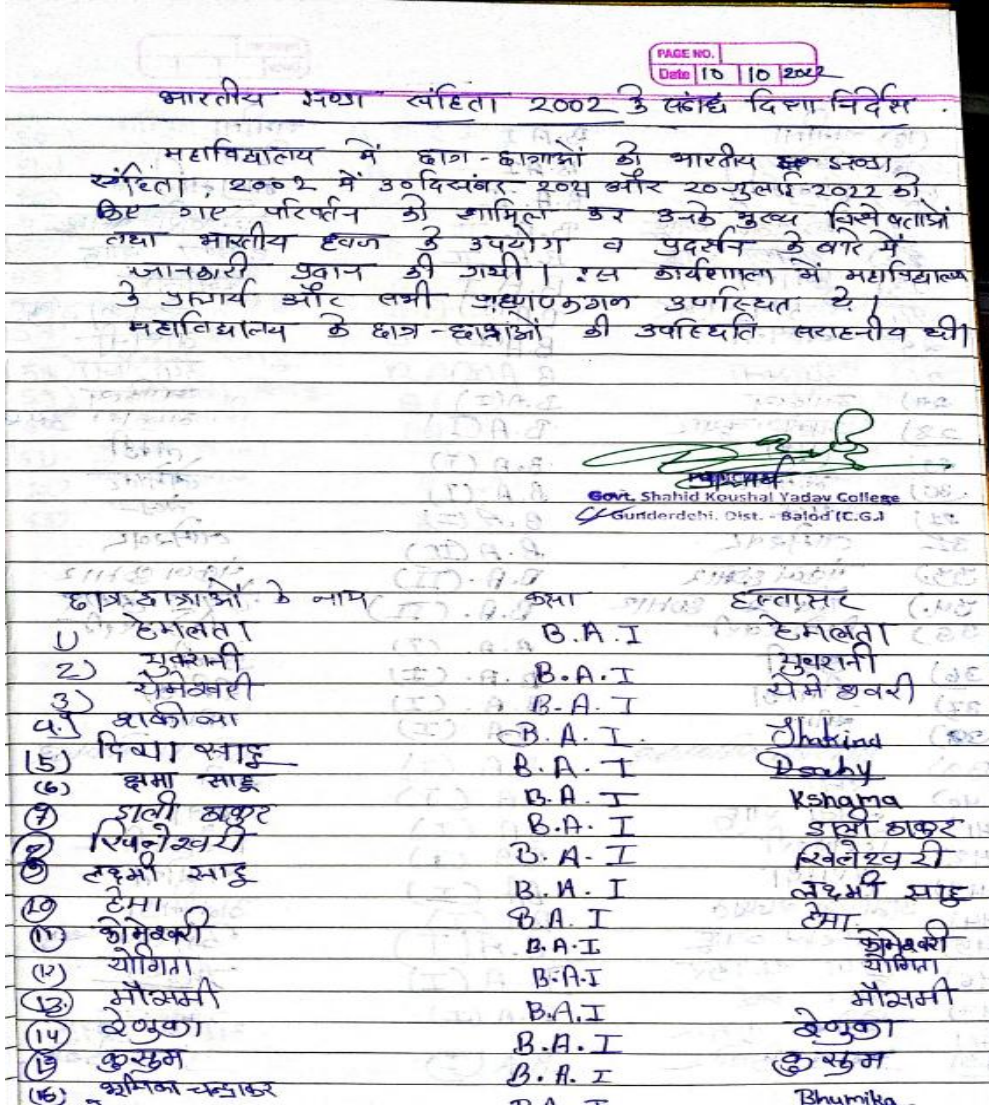 PAGE NO.
Date 10 10 2022
भारतीय झण्डा संहिता 2002 के संबंध दिशा निर्देश .
महाविद्यालय में छात्र - छात्राओं को भारतीय झण्डा
संहिता, २००२ में ३० दिसंबर और २० जुलाई-२०२२ को
किए गए परिर्वतन को शामिल कर उनके मुख्य विशेषताओं
तथा भारतीय ध्वज के उपयोग व प्रदर्सन के बारे में
जानकारी प्रदान की गयी । इस कार्यशाला में महाविद्यालय
के प्राचार्य और सभी उपस्थित थे ।
महाविद्यालय के छात्र - छात्राओं की उपस्थिति सराहनीय थी।
Govt. Shahid Koushal Yadav College
Gunderdehi, Dist. - Balod (C.G.)
छात्र छात्राओं के नाम कक्षा हस्ताक्षर
1) हेमलता B.A.I हेमलता
2) सुकरानी B.A.I सुकरानी
3) यमेश्वरी B.A.I
4.) शाकीना B.A.I. Shakina
(5) दिव्या साहू B.A.I Dsahu
(6) क्षमा साहू B.A.I Kshama
(7) डाली ठाकुर B.A.I डाली ठाकुर
(8) खिलेश्वरी B.A.I खिलेश्वरी
(9) लक्ष्मी साहू B.A.I लक्ष्मी साहू
(10) हेमा B.A.I हेमा
(11) कोमेश्वरी B.A.I कोमेश्वरी
(12) योगिता B.A.I योगिता
(13.) मौसमी B.A.I मौसमी
(14) रेणुका B.A.I रेणुका
(15) कुसुम B.A.I कुसुम
(16) भूमिका चन्द्राकर B.A.I Bhumika